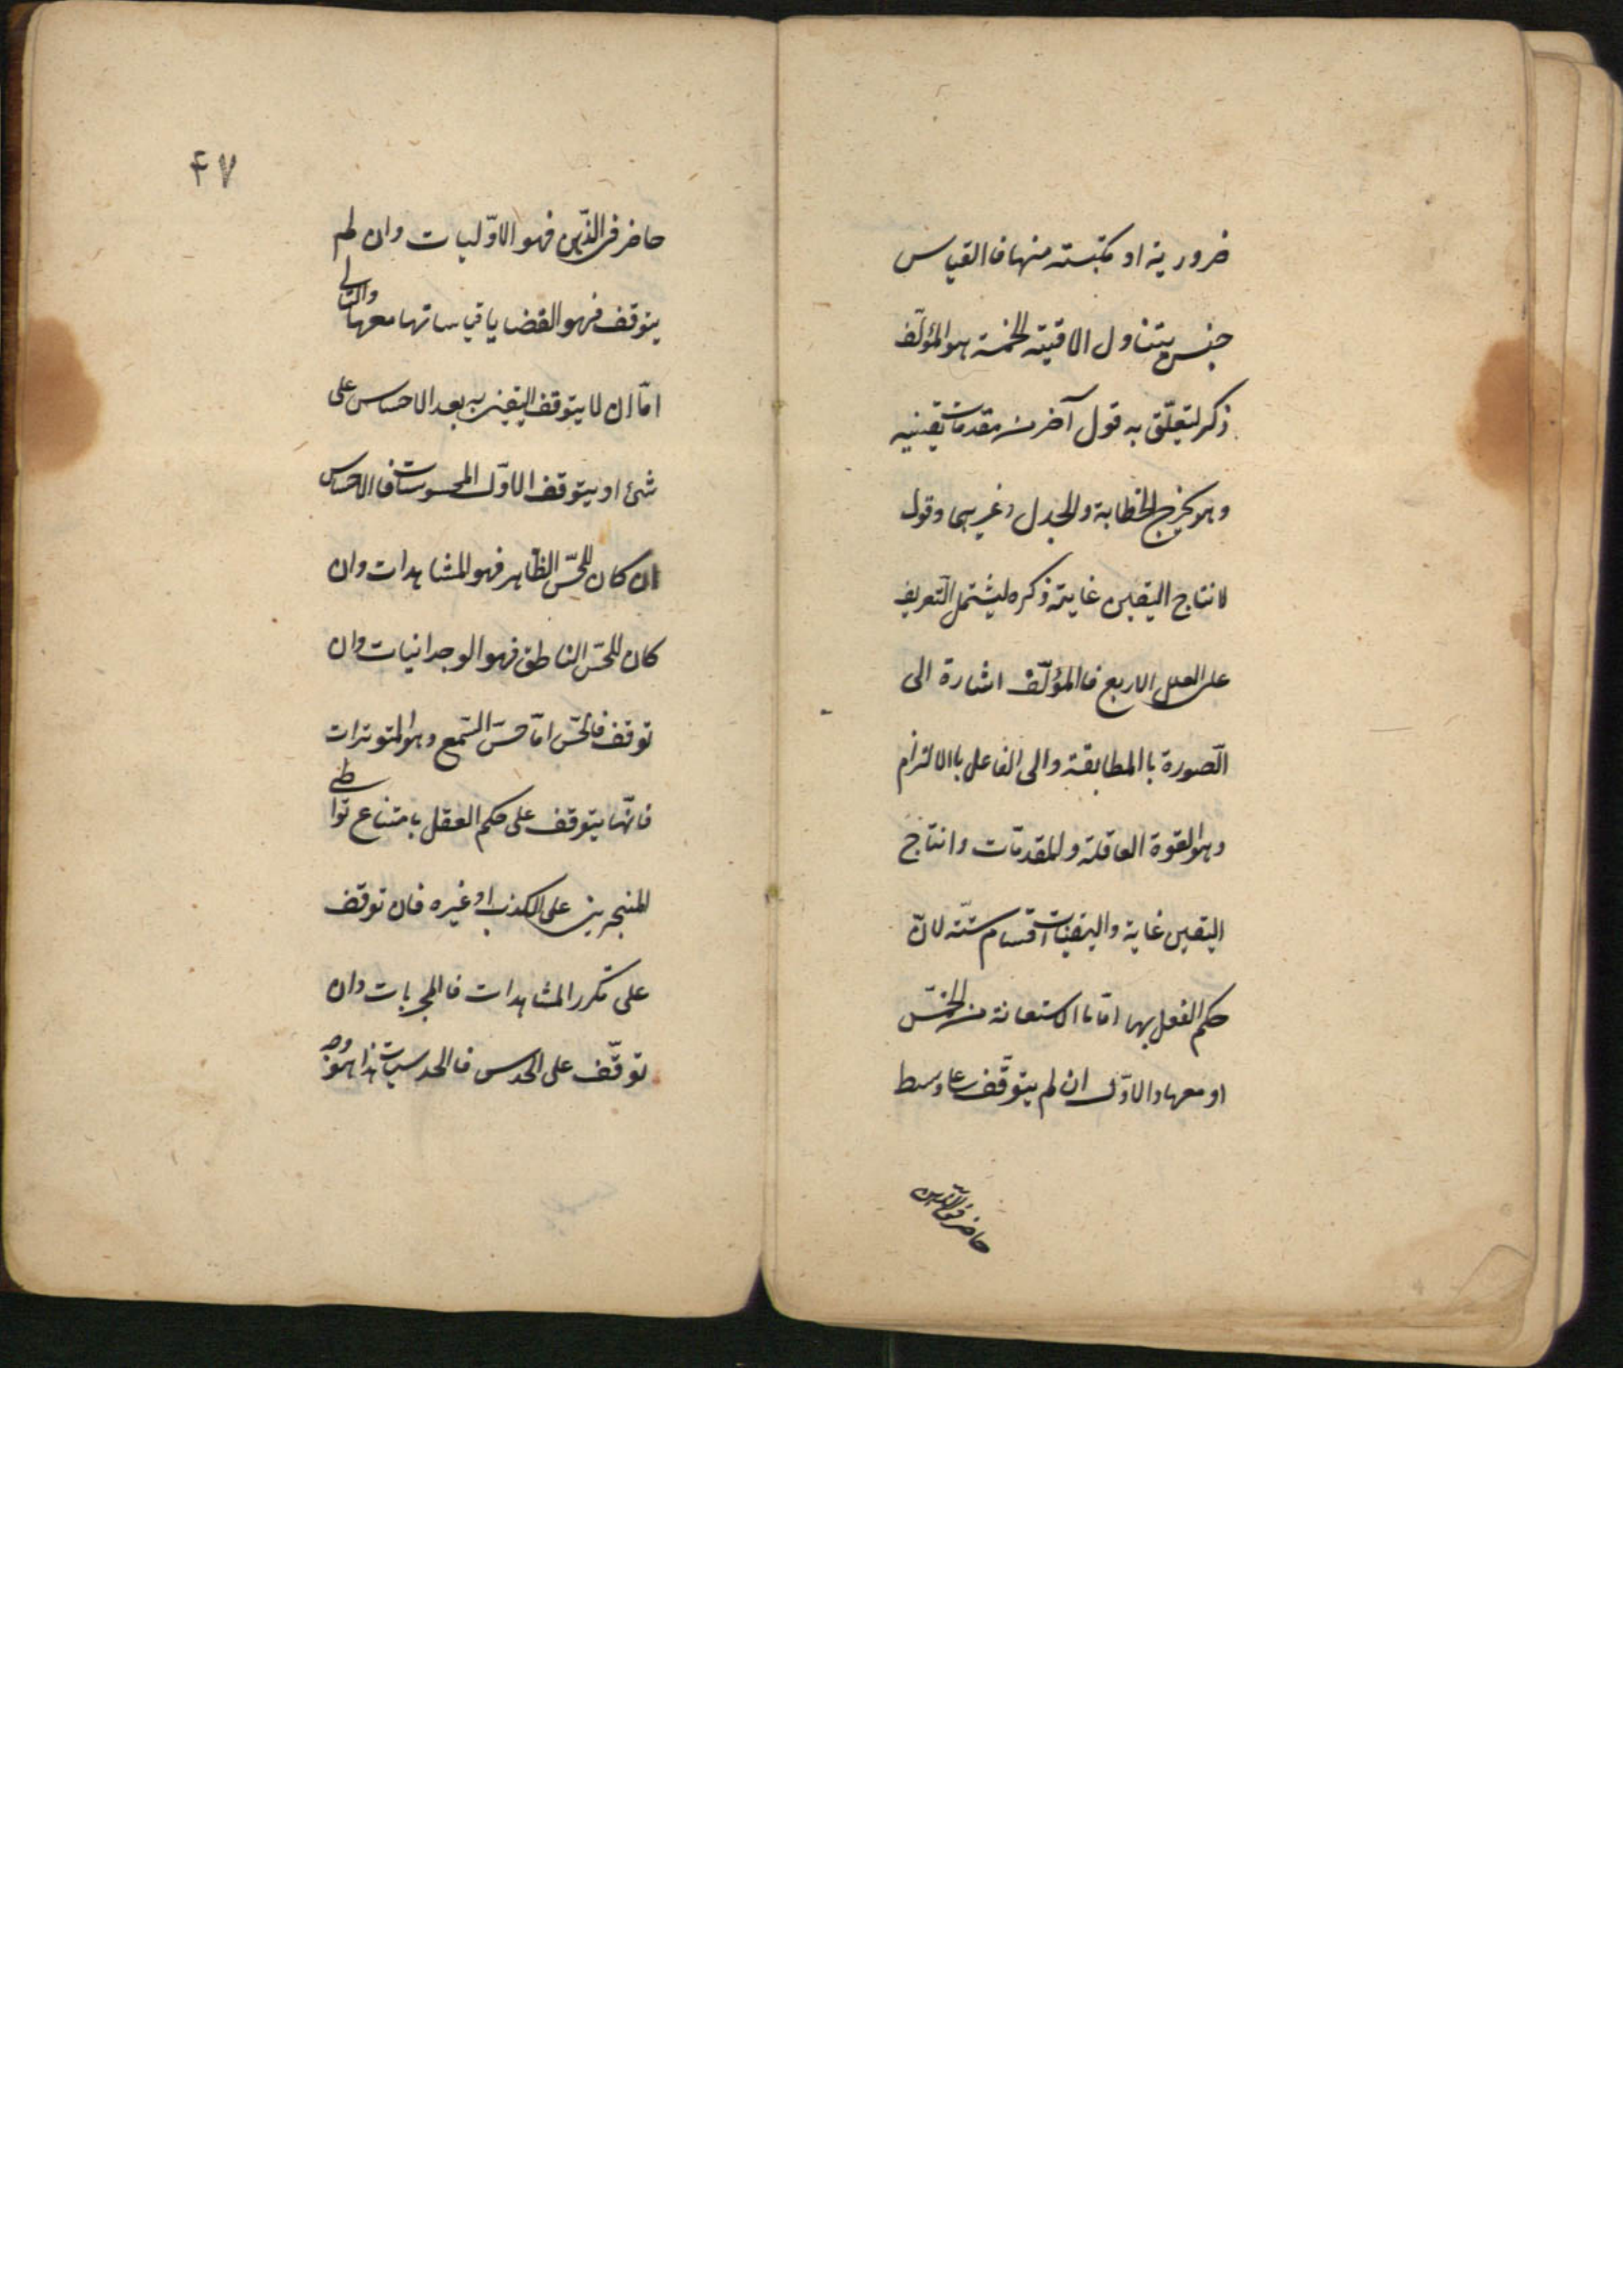 ضرورية او مكتسبته منها فاالقياس
جنس يتناول الاقيته الخمسة هوالمؤلّف
ذكر ليتعلّق به قول آخر من مقدمات يقينيه
وهو يخرج الخطابة والجدل وغيرهما وقوله
لانتاج اليقين غايته ذكره ليشتمل التّعريف
على العلل الاربع فاالمؤلّف اشارة الى
الصّورة باالمطابقة والى الفاعل باالالتزام
وهوالقوة العاقلة والمقدمّات وانتاج
اليقين غاية واليقينيات اقسام ستّه لانّ
حكم العقل بها امّا باالاستعانة من الحسّ
او معها والاوّل ان لم يتوقّف على وسط
حاضر فى الذّهن
۴۷
حاضر فى الذّهن فهو الاوّليات وان لم
يتوقف فهو القضايا قياساتها معها والثانى
امّا ان لا يتوقف اليقين به بعد الاحساس على
شئ او يتوقف الاوّل المحسوسات فاالاحساس
ان كان للحسّ الظّاهر فهو المشاهدات وان
كان للحسّ الباطن فهو الوجدانيات وان
توقف فالحسّ امّا حسّ السّمع وهوالمتوترات
فانّها يتوقف على حكم العقل بامتناع تواطى
المنجرين على الكذب او غيره فان توقف
على تكرر المشاهدات فالمجربات وان
توقّف على الحدس فاالحدسيات هذا هو وجه